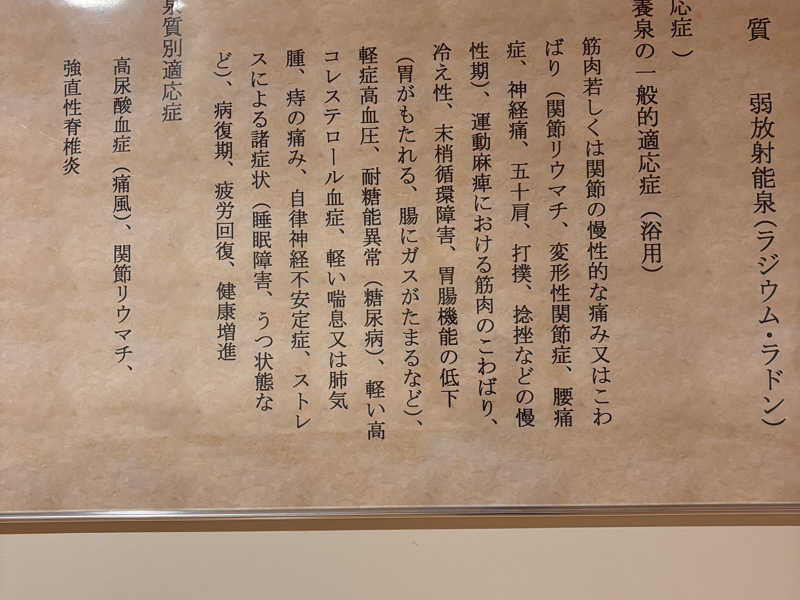 質　弱放射能泉（ラジウム・ラドン）
応症）
養泉の一般的適応症（浴用）
筋肉若しくは関節の慢性的な痛み又はこわ
ばり（関節リウマチ、変形性関節症、腰痛
症、神経痛、五十肩、打撲、捻挫などの慢
性期）、運動麻痺における筋肉のこわばり、
冷え性、末梢循環障害、胃腸機能の低下
（胃がもたれる、腸にガスがたまるなど）、
軽症高血圧、耐糖能異常（糖尿病）、軽い高
コレステロール血症、軽い喘息又は肺気
腫、痔の痛み、自律神経不安定症、ストレ
スによる諸症状（睡眠障害、うつ状態な
ど）、病復期、疲労回復、健康増進
泉質別適応症
高尿酸血症（痛風）、関節リウマチ、
強直性脊椎炎